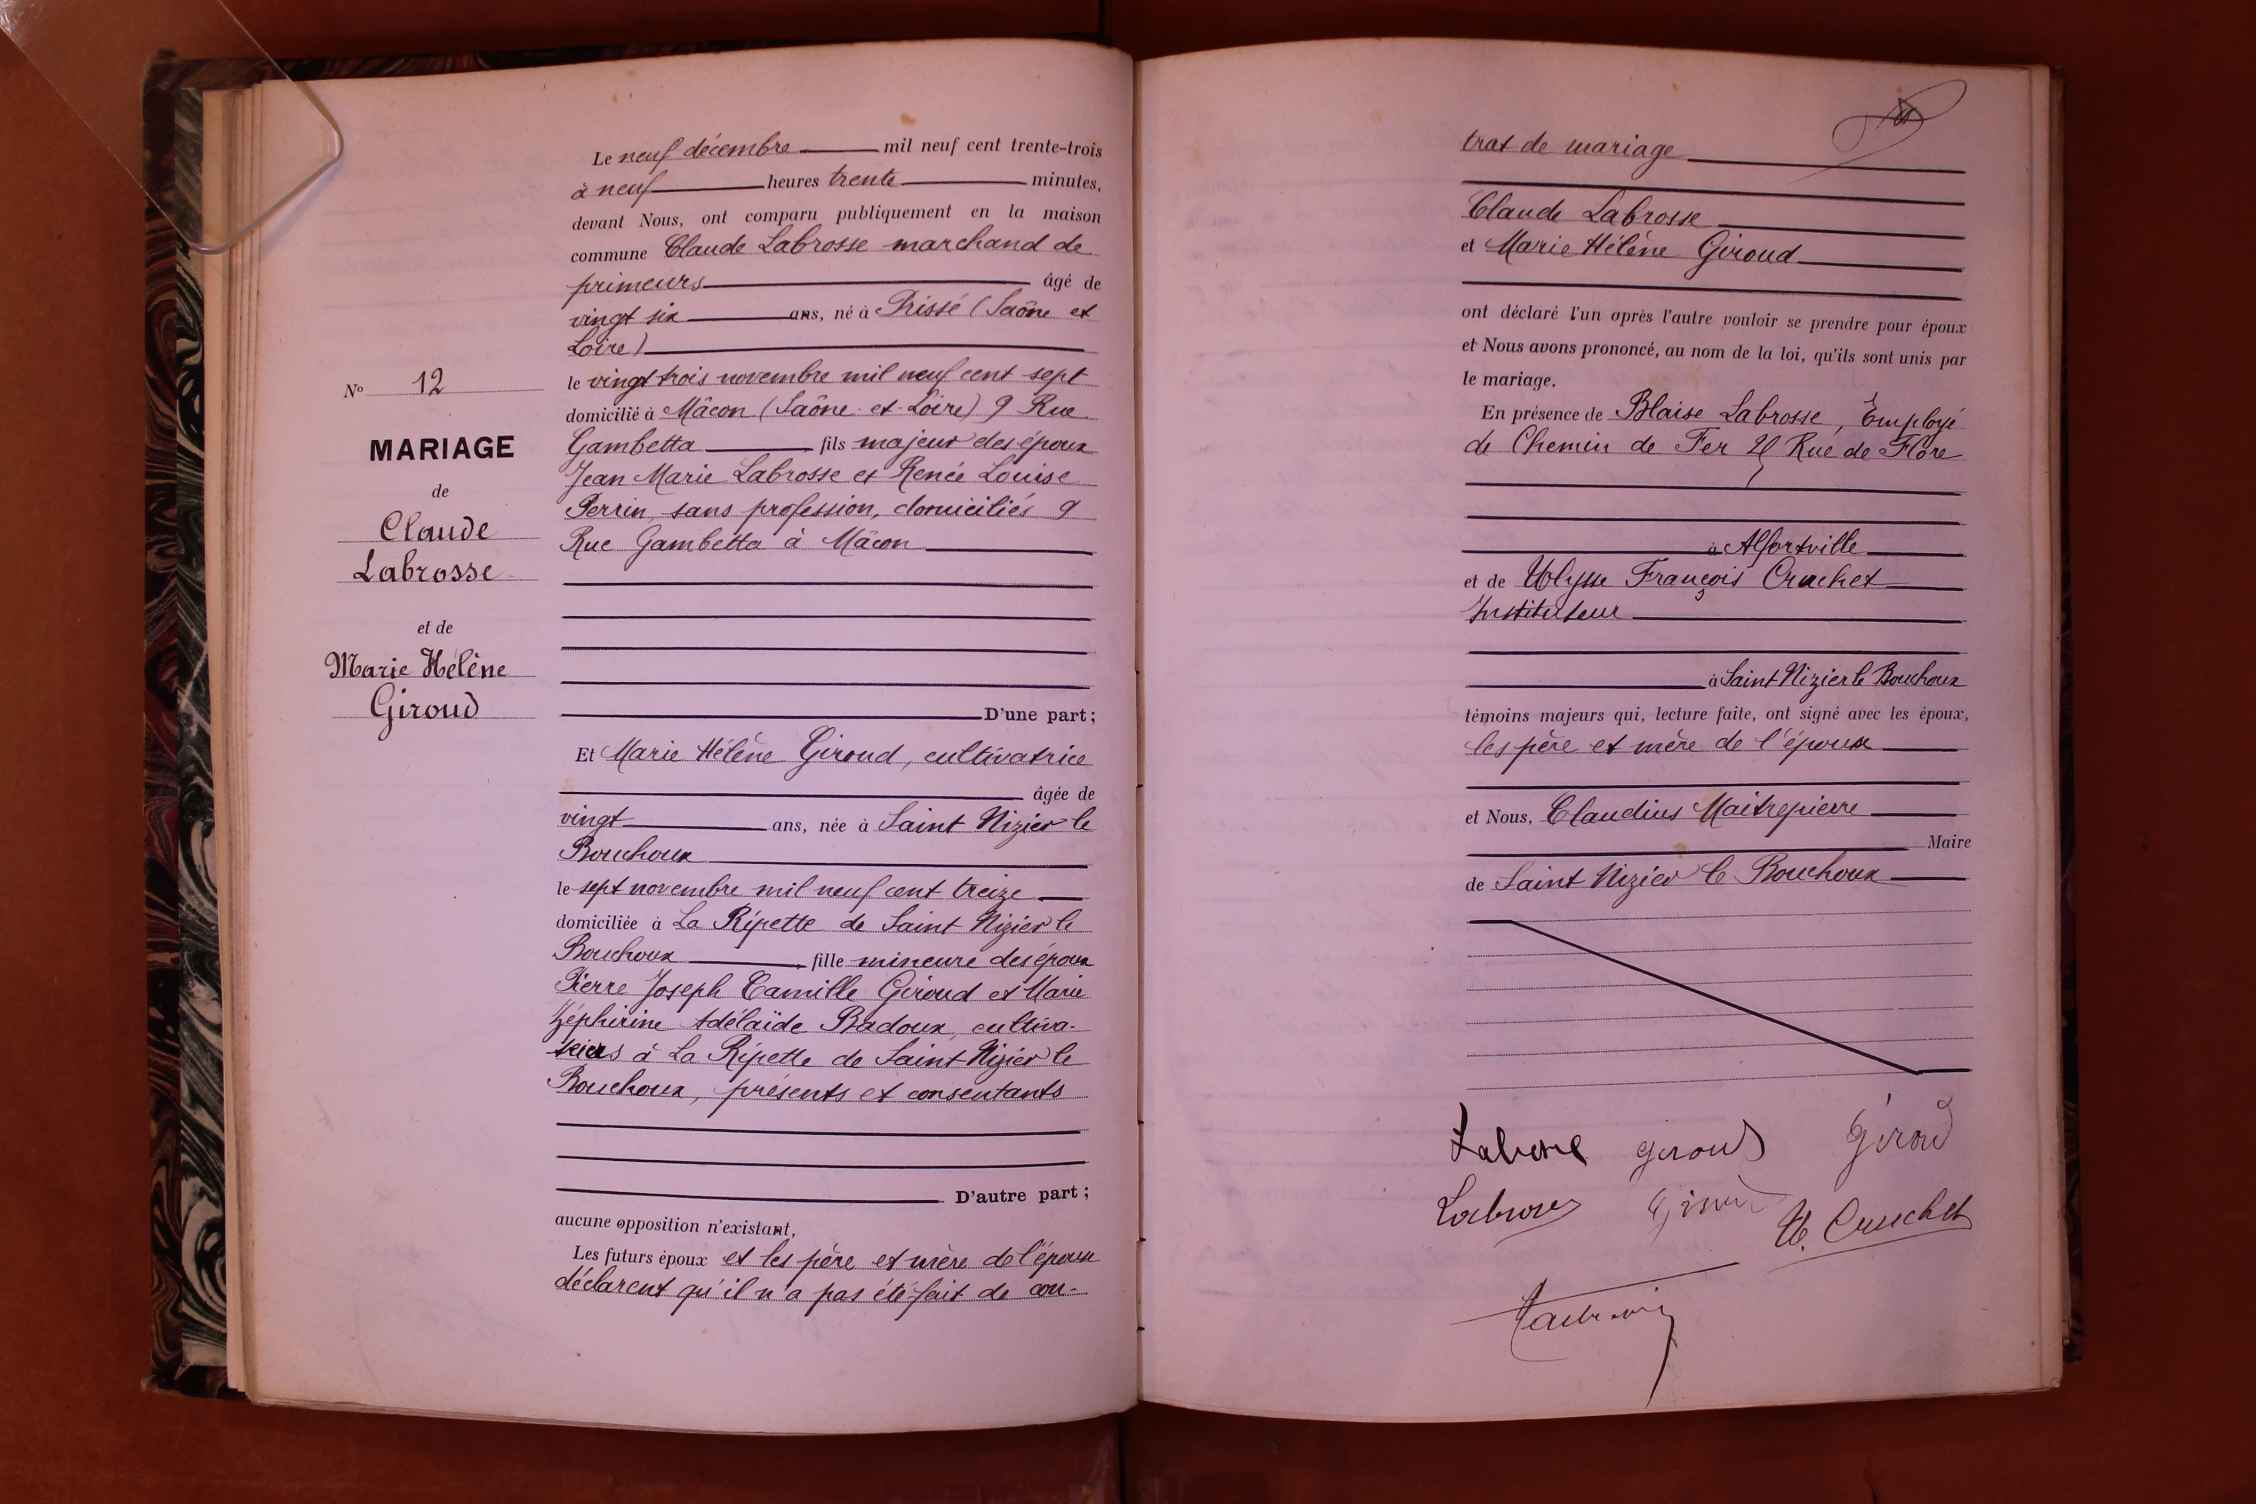 N° 12
MARIAGE
de
Claude
Labrosse
et de
Marie Hélène
Giroud
Le neuf décembre mil neuf cent trente-trois
à neuf heures trente minutes,
devant Nous, ont comparu publiquement en la maison
commune Claude Labrosse marchand de
primeurs âgé de
vingt six ans, né à Prissé (Saône et
Loire)
le vingt trois novembre mil neuf cent sept
domicilié à Mâcon (Saône-et-Loire) 9 Rue
Gambetta fils majeur des époux
Jean Marie Labrosse et Renée Louise
Perrin, sans profession, domiciliés 9
Rue Gambetta à Mâcon
D'une part;
Et Marie Hélène Giroud, cultivatrice
âgée de
vingt ans, née à Saint Nizier le
Bouchoux
le sept novembre mil neuf cent treize
domiciliée à La Ripette de Saint Nizier le
Bouchoux fille mineure des époux
Pierre Joseph Camille Giroud et Marie
Zéphirine Adélaïde Badoux, cultiva-
teurs à La Ripette de Saint Nizier le
Bouchoux, présents et consentants
D'autre part;
aucune opposition n'existant,
Les futurs époux et les père et mère de l'épouse
déclarent qu'il n'a pas été fait de con-
trat de mariage
Claude Labrosse
et Marie Hélène Giroud
ont déclaré l'un après l'autre vouloir se prendre pour époux
et Nous avons prononcé, au nom de la loi, qu'ils sont unis par
le mariage.
En présence de Blaise Labrosse, Employé
de Chemin de Fer Rue de Flore
à Alfortville
et de Ulysse François Cruchet
Instituteur
à Saint Nizier le Bouchoux
témoins majeurs qui, lecture faite, ont signé avec les époux,
les père et mère de l'épouse
et Nous, Claudius Maitrepierre
Maire
de Saint Nizier le Bouchoux
Labrosse Giroud Giroud
Labrosse Giroud U. Cruchet